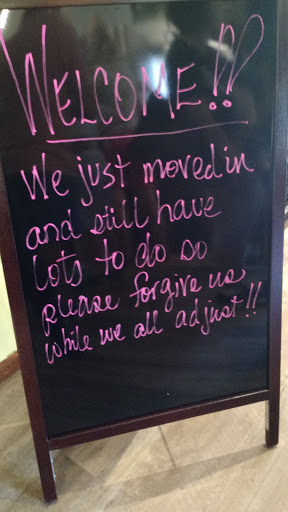 WELCOME!!
We just moved in
and still have
lots to do so
please forgive us
while we all adjust!!